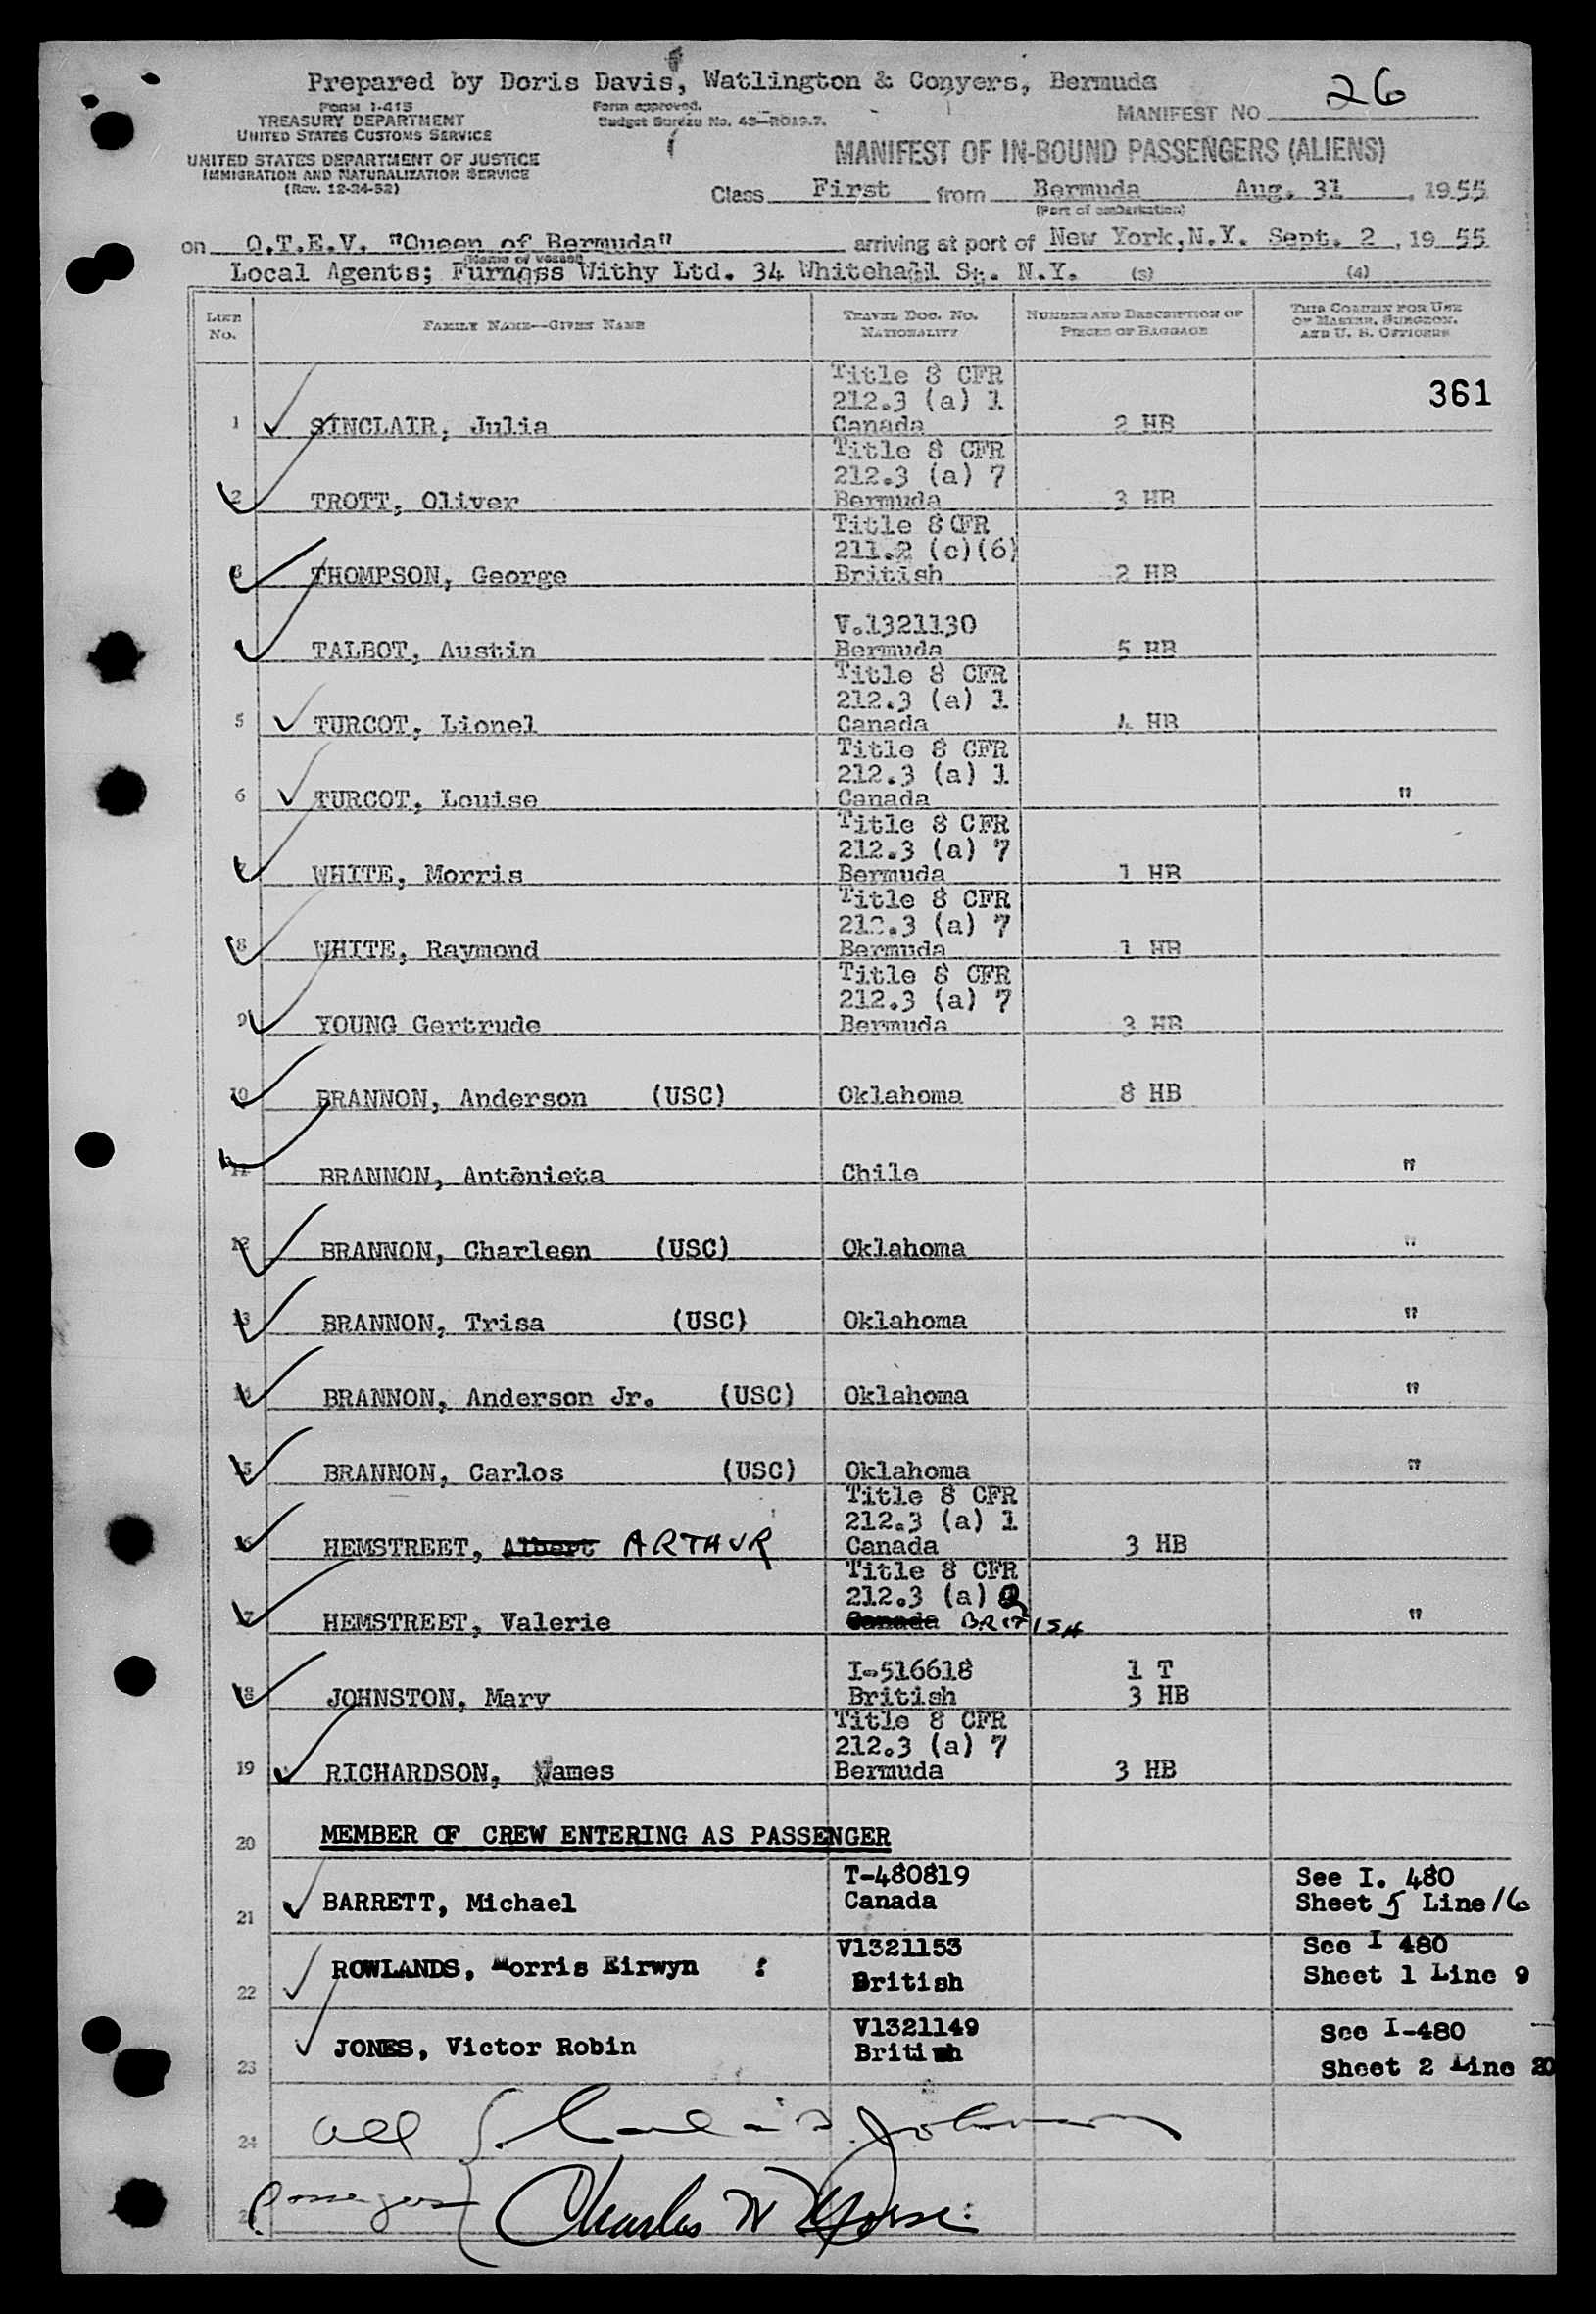 Prepared by Doris Davis, Watlington & Conyers, Bermuda
26
FORM I-415
TREASURY DEPARTMENT
UNITED STATES CUSTOMS SERVICE
Form approved.
Budget Bureau No. 43-RO19.7.
MANIFEST NO
UNITED STATES DEPARTMENT OF JUSTICE
IMMIGRATION AND NATURALIZATION SERVICE
(Rev. 12-24-52)
MANIFEST OF IN-BOUND PASSENGERS (ALIENS)
Class First from Bermuda Aug. 31, 1955
(Port of embarkation)
on Q.T.E.V. "Queen of Bermuda" arriving at port of New York,N.Y. Sept. 2, 1955
(Name of vessel)
Local Agents; Furness Withy Ltd. 34 Whitehall St. N.Y. (3) (4)
LINE No. FAMILY NAME—GIVEN NAME TRAVEL DOC. NO. NATIONALITY NUMBER AND DESCRIPTION OF PIECES OF BAGGAGE THIS COLUMN FOR USE OF MASTER, SURGEON, AND U. S. OFFICERS
361
Title 8 CFR
212.3 (a) 1
1 SINCLAIR, Julia Canada 2 HB
Title 8 CFR
212.3 (a) 7
2 TROTT, Oliver Bermuda 3 HB
Title 8 CFR
211.2 (c)(6)
3 THOMPSON, George British 2 HB
V.1321130
TALBOT, Austin Bermuda 5 HB
Title 8 CFR
212.3 (a) 1
5 TURCOT, Lionel Canada 4 HB
Title 8 CFR
212.3 (a) 1
6 TURCOT, Louise Canada "
Title 8 CFR
212.3 (a) 7
7 WHITE, Morris Bermuda 1 HB
Title 8 CFR
212.3 (a) 7
8 WHITE, Raymond Bermuda 1 HB
Title 8 CFR
212.3 (a) 7
9 YOUNG Gertrude Bermuda 3 HB
10 BRANNON, Anderson (USC) Oklahoma 8 HB
11 BRANNON, Antonieta Chile "
12 BRANNON, Charleen (USC) Oklahoma "
13 BRANNON, Trisa (USC) Oklahoma "
14 BRANNON, Anderson Jr. (USC) Oklahoma "
15 BRANNON, Carlos (USC) Oklahoma "
Title 8 CFR
212.3 (a) 1
16 HEMSTREET, Albert ARTHUR Canada 3 HB
Title 8 CFR
212.3 (a)
17 HEMSTREET, Valerie Canada BRITISH "
I-516618 1 T
18 JOHNSTON, Mary British 3 HB
Title 8 CFR
212.3 (a) 7
19 RICHARDSON, James Bermuda 3 HB
20 MEMBER OF CREW ENTERING AS PASSENGER
T-480819 See I. 480
21 BARRETT, Michael Canada Sheet 5 Line 16
V1321153 See I 480
22 ROWLANDS, Morris Eirwyn British Sheet 1 Line 9
V1321149 See I-480
23 JONES, Victor Robin British Sheet 2 Line 20
24 all Johnson
passengers Charles W Morse